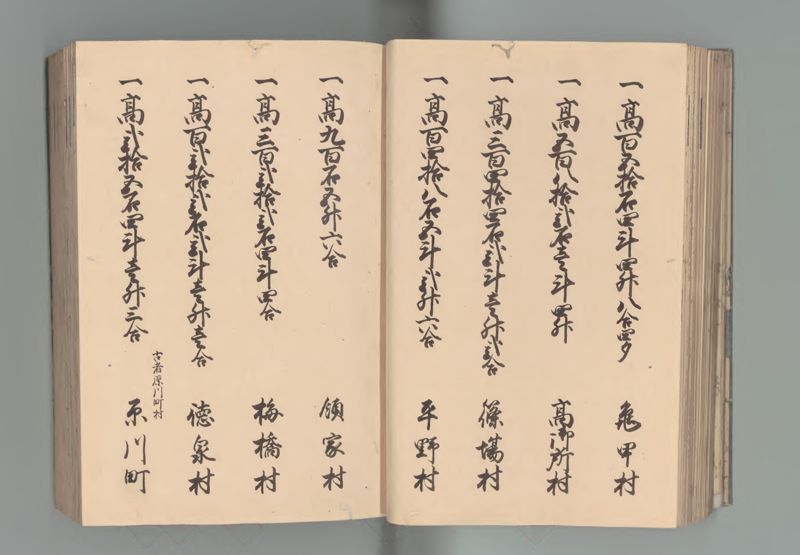 一高百五拾石四斗四升八合四夕 亀甲村
一高五百八拾弐石壱斗四升 高御所村
一高三百四拾四石弐斗壱升弐合 篠場村
一高百四拾八石五斗弐升六合 平野村
一高九百石五升六合 領家村
一高三百弐拾弐石四斗四合 梅橋村
一高百弐拾弐石弐斗壱升壱合 徳泉村
古者原川町村
一高弐拾五石四斗壱升三合 原川町